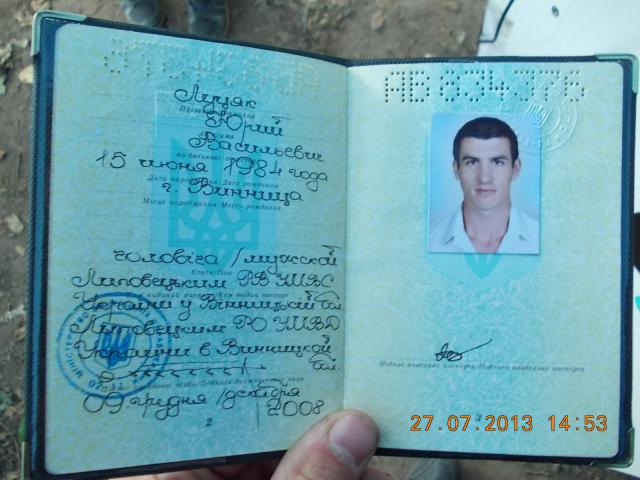 Луцяк
Прізвище/Фамилия
Юрий
Ім'я/Имя
Васильевич
по батькові/отчество
15 июня 1984 года
Дата народження/Дата рождения
г. Винница
Місце народження/Место рождения
чоловіча /мужской
Стать/Пол
Липовецким РВ УМВС
України у Вінницькій обл.
Липовецким РО УМВД
Украины в Винницкой
обл.
09 грудня /декабря
2008
2
АВ 834376
Підпис власника паспорта/Подпись владельца паспорта
3
27.07.2013 14:53